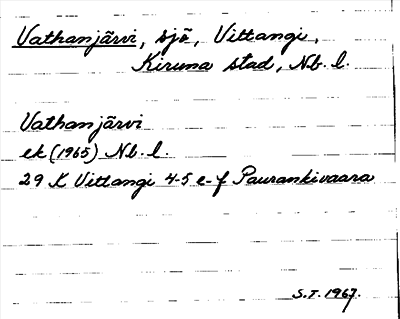 Vathanjärvi, sjö, Vittangi,
Kiruna stad, Nb. l.
Vathanjärvi
ek (1965) Nb. l.
29 K Vittangi 4-5 e-f Paurankivaara
S.T. 1967.